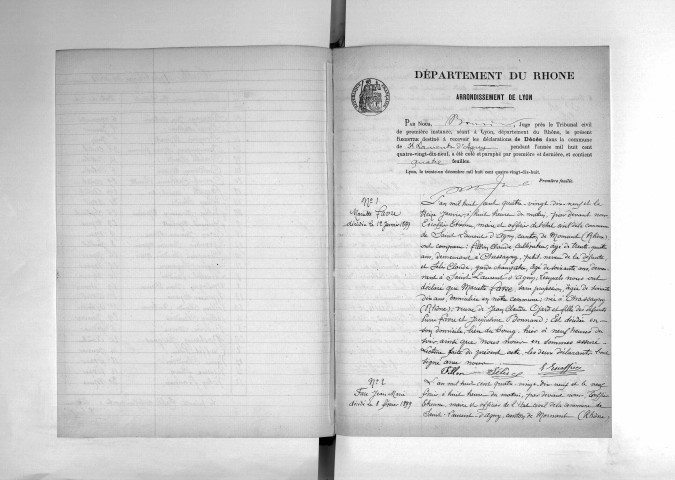 DÉPARTEMENT DU RHONE
ARRONDISSEMENT DE LYON
PAR NOUS, Juge près le Tribunal civil
de première instance, séant à Lyon, département du Rhône, le présent
REGISTRE destiné à recevoir les déclarations de Décès dans la commune
de St Laurent d'Agny pendant l'année mil huit cent
quatre-vingt-dix-neuf, a été coté et paraphé par première et dernière, et contient
quatre feuilles.
Lyon, le trente-un décembre mil huit cent quatre-vingt-dix-huit.
Première feuille.
N° 1
Mariette Favre
décédée le 12 janvier 1899
L'an mil huit cent quatre-vingt-dix-neuf et le
treize janvier, à huit heures du matin, par devant nous
Escoffier Etienne, maire et officier de l'état civil de la commune
de Saint-Laurent d'Agny, canton de Mornant (Rhône)
ont comparu: Claude, cultivateur, âgé de trente-quatre
ans, demeurant à Chassagny, petit-neveu de la défunte,
et Claude, garde champêtre, âgé de soixante ans, demeu-
rant à Saint-Laurent d'Agny; lesquels nous ont
déclaré que Mariette Favre, sans profession, âgée de soixante
dix ans, domiciliée en notre commune, née à Chassagny
(Rhône); veuve de Jean Claude et fille des défunts
Favre et Bonnand; est décédée en
son domicile, lieu du bourg, hier à neuf heures du
soir, ainsi que nous nous en sommes assuré.
Lecture faite du présent acte, les deux déclarants l'ont
signé avec nous.
E. Escoffier
N° 2
Jean Marie
décédé le 8 février 1899
L'an mil huit cent quatre-vingt-dix-neuf et le neuf
février à huit heures du matin, par devant nous, Escoffier
Etienne, maire et officier de l'état civil de la commune de
Saint-Laurent d'Agny, canton de Mornant (Rhône),